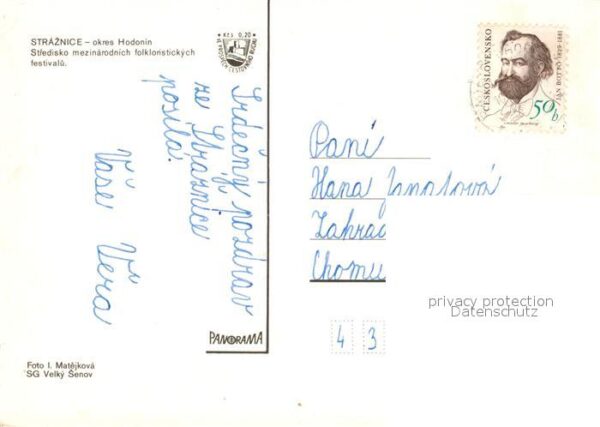 STRÁŽNICE – okres Hodonín
Středisko mezinárodních folkloristických
festivalů.
Kčs 0,20
Srdečný pozdrav
ze Strážnice
posílá
Vaše Věra
PANORAMA
Foto I. Matějková
SG Velký Šenov
ČESKOSLOVENSKO
JÁN BOTTO 1829-1881
50 h
Paní
Hana
Zahrad
Chomu
4 3
privacy protection
Datenschutz